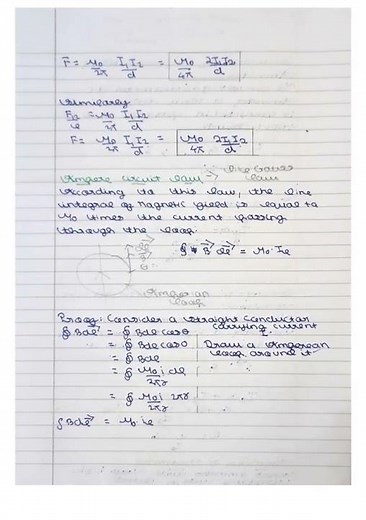 F = μ₀/2π I₁I₂/d = μ₀/4π 2I₁I₂/d
Similarly
F₁₂/l = μ₀/2π I₁I₂/d
F = μ₀/2π I₁I₂/d = μ₀/4π 2I₁I₂/d
Ampere circuit law → like Gauss law
According to this law, the line
integral of magnetic field is equal to
μ₀ times the current passing
through the loop.
∮ B⃗ dl⃗ = μ₀ Ie
Amperian
loop
Proof: Consider a straight conductor
carrying current
I.
∮ Bdl⃗ = ∮ Bdl cosθ
= ∮ Bdl cos0 Draw a Amperean
= ∮ Bdl loop around it
= ∮ μ₀i/2πr dl
= ∮ μ₀i/2πr 2πr
∫Bdl⃗ = μ₀ ie